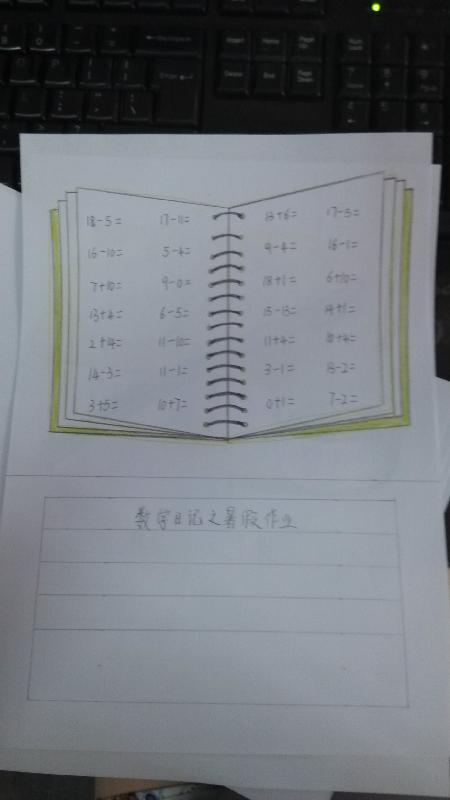 18-5= 17-11= 13+6= 17-5=
16-10= 5-4= 9-4= 16-1=
7+10= 9-0= 18+1= 6+10=
13+4= 6-5= 15-13= 14+1=
2+14= 11-10= 11+4= 10+4=
14-3= 11-1= 3-1= 13-2=
3+5= 10+7= 0+1= 7-2=
数学日记之暑假作业